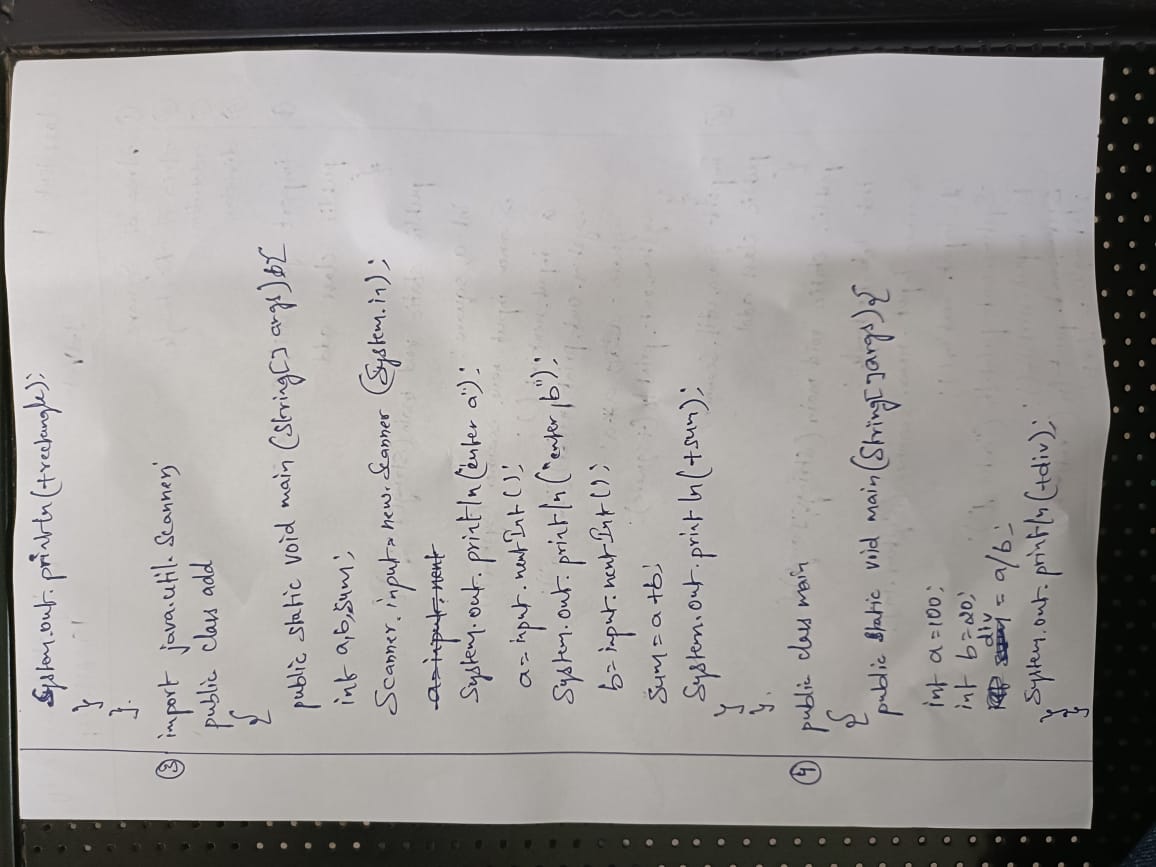 System.out.println(+rectangle);
}
}.
③ import java.util.Scanner;
public class add
{
public static void main (String[] args) {
int a,b,sum;
Scanner.input=new.Scanner (System.in);
a=input.next
System.out.println("enter a");
a=input.nextInt();
System.out.println("enter b");
b=input.nextInt();
Sum=a+b;
System.out.println(+sum);
}
}.
④ public class main
{
public static void main(String[]args){
int a=100;
int b=20;
div = a/b;
System.out.println(+div);
}
}